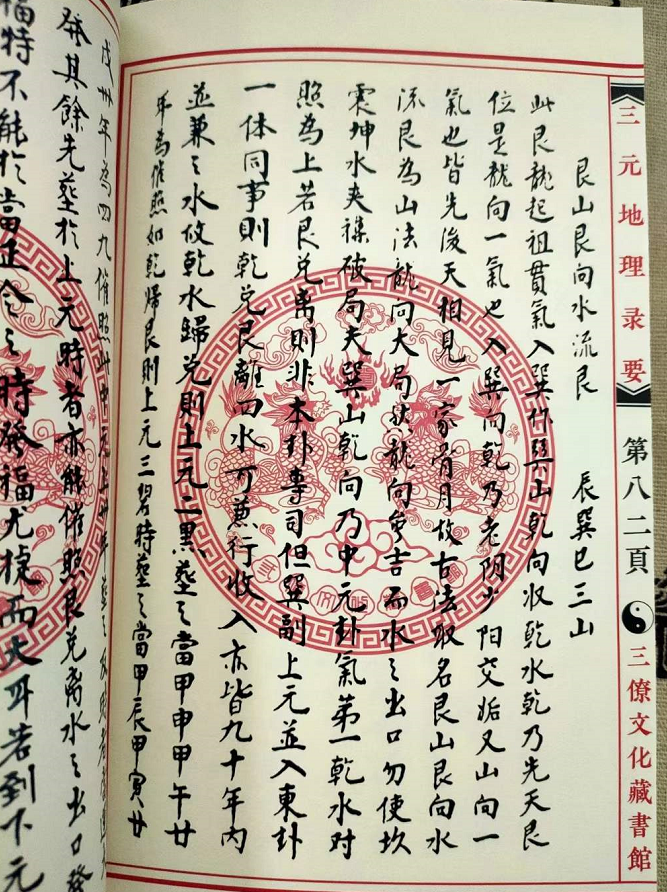 三元地理录要
第八二頁
三僚文化藏書館
艮山艮向水流艮 辰巽巳三山
此艮龍起祖貫氣入巽作巽山乾向收乾水乾乃先天艮
位是龍向一氣也入巽向乾乃老阴少阳交姤又山向一
氣也皆先後天相見一家骨月故古法取名艮山艮向水
流艮為山法龍向大局於龍向多吉而水之出口勿使坎
震坤水夾雜破局夫巽山乾向乃中元卦氣第一乾水对
照為上若艮兑离則非本卦專司但巽副上元並入東卦
一体同事則乾兑艮離四水可兼行收入亦皆九十年内
並兼之水位乾水歸兑則上元二黑塟之當甲申甲午廿
年為催照如乾歸艮則上元三碧時塟之當甲辰甲寅廿
戊卅年為四九催照此中元上卅年塟之
發其餘先塟於上元時者亦能催照艮兑离水之出口發
福特不能於當正令之時發福尤捷而大耳若到下元